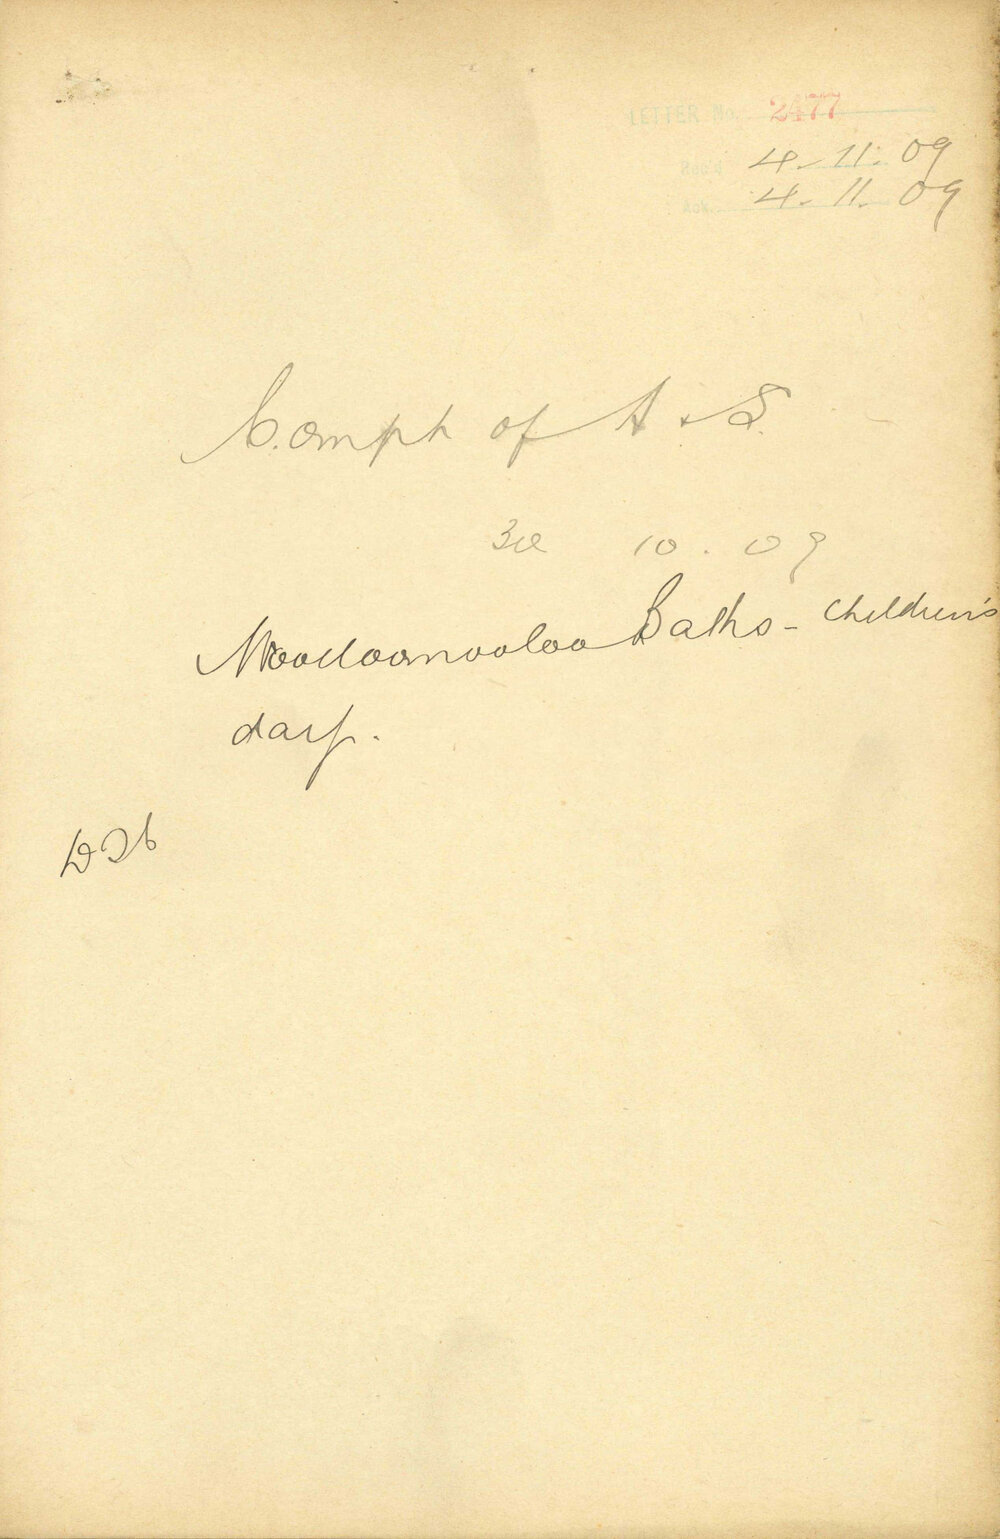 LETTER No. 2477
Rec'd 4. 11. 09
Ack. 4. 11. 09
Comptr of A & S.
30 10. 09
Woolloomooloo Baths - Children's
days.